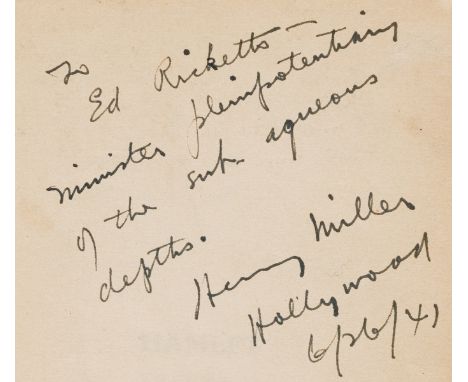 To
Ed Ricketts —
minister plenipotentiary
of the sub-aqueous
depths.
Henry Miller
Hollywood
6/26/41